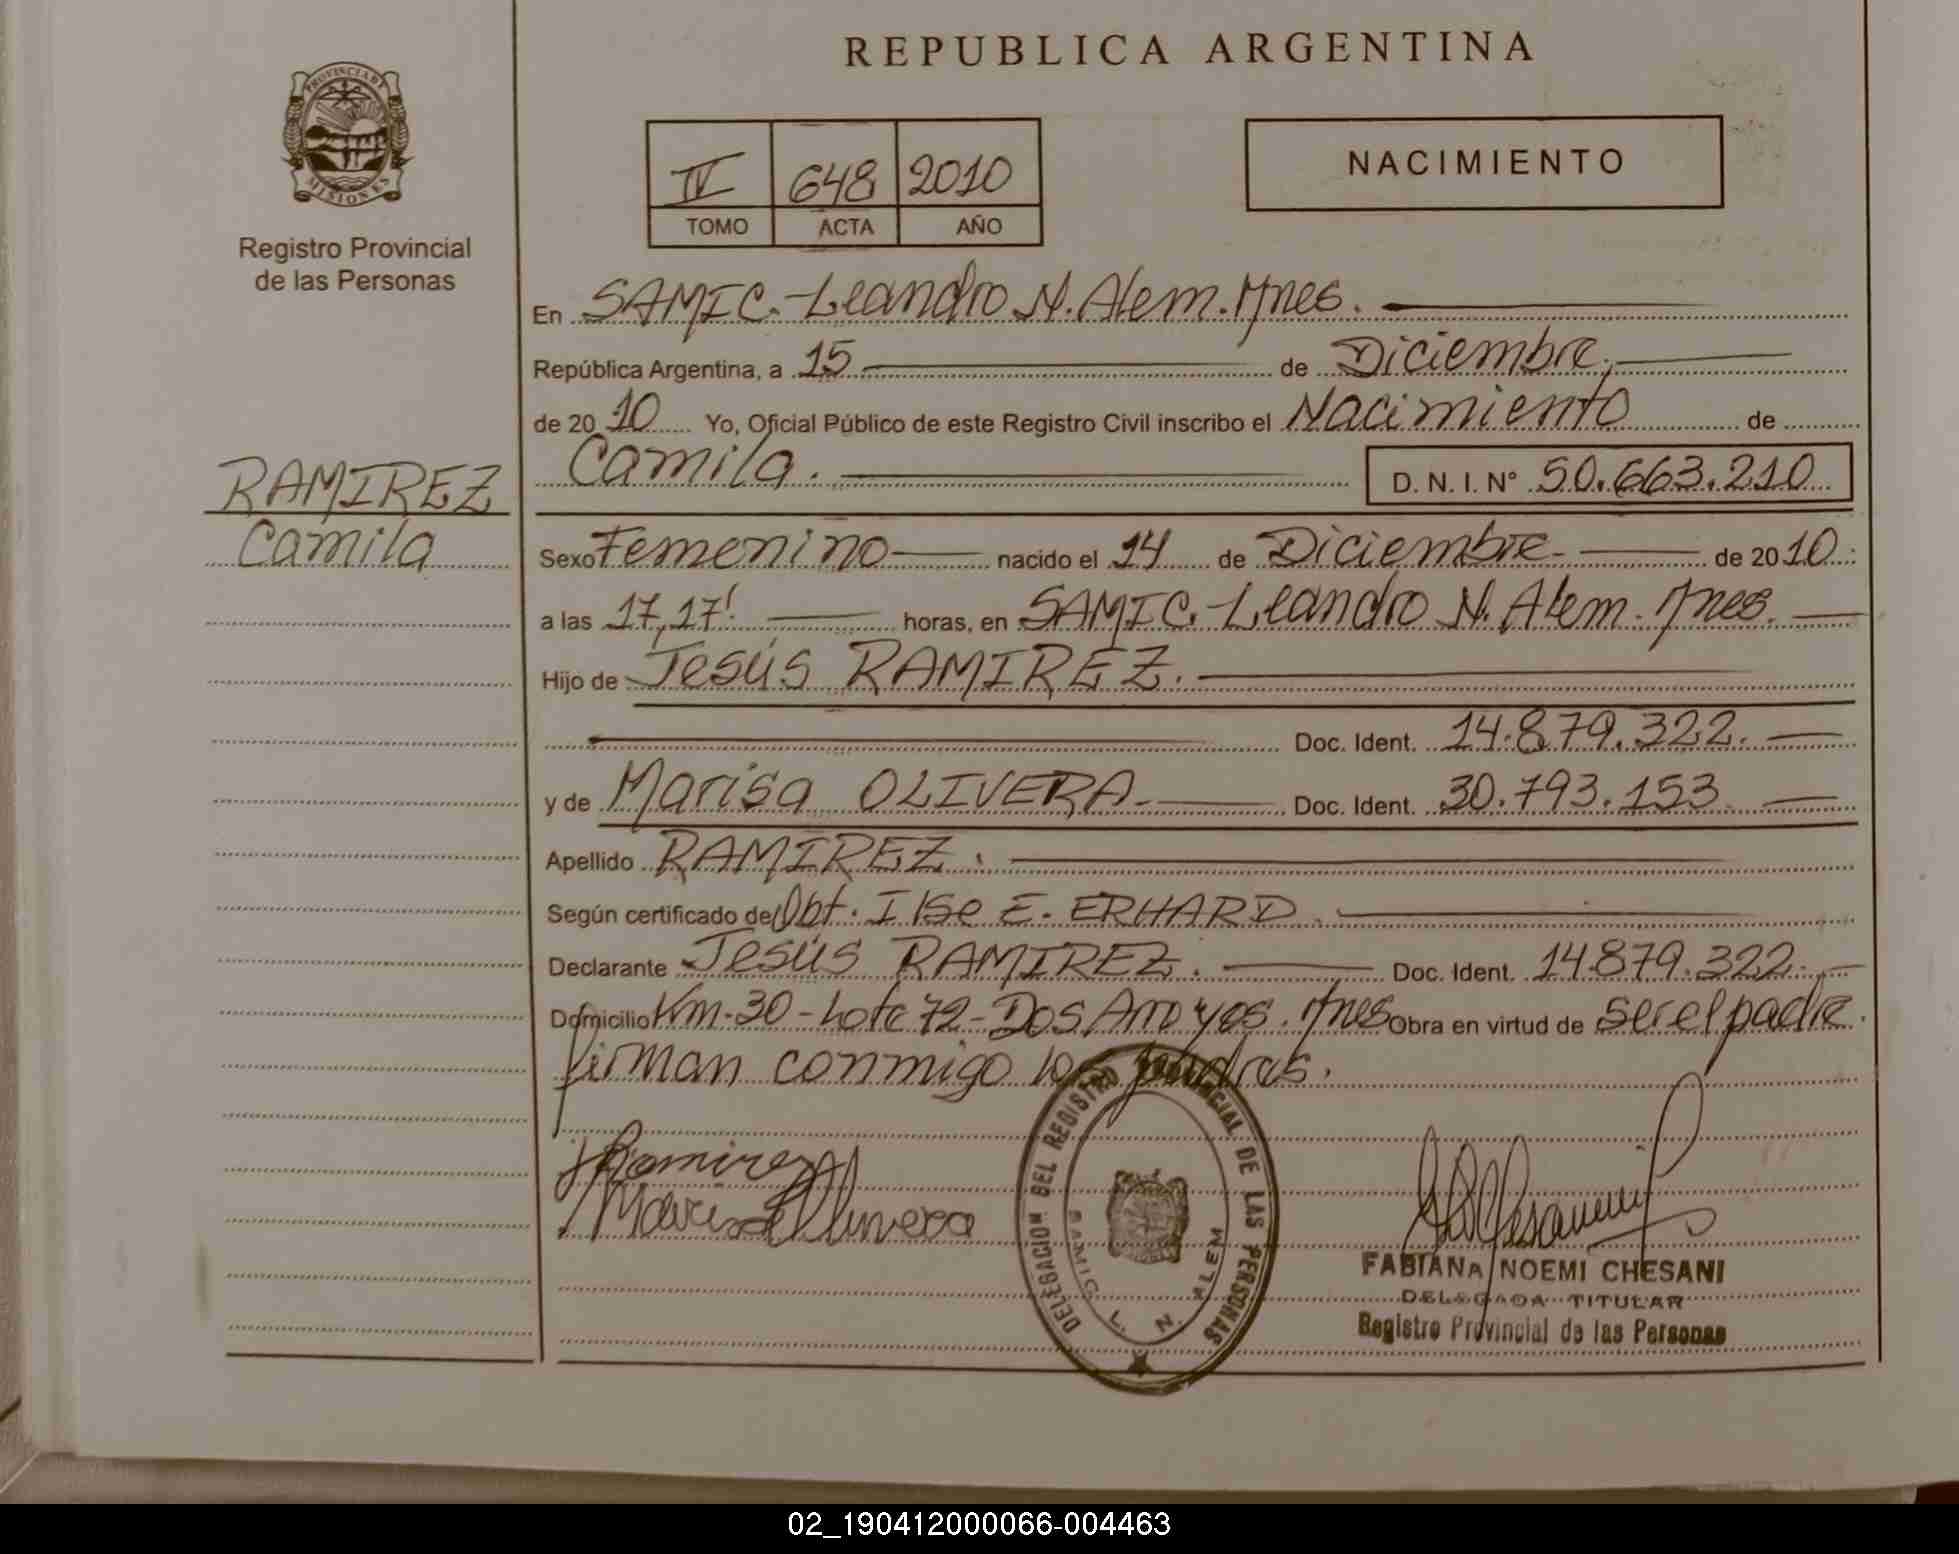 REPUBLICA ARGENTINA
PROVINCIA DE MISIONES
Registro Provincial
de las Personas
IV 648 2010
TOMO ACTA AÑO
NACIMIENTO
En SAMIC.-Leandro N. Alem. Mnes.
República Argentina, a 15 de Diciembre,
de 2010 Yo, Oficial Público de este Registro Civil inscribo el Nacimiento de
Camila. D. N. I. N° 50.663.210
RAMIREZ
Camila
Sexo Femenino nacido el 14 de Diciembre- de 2010
a las 17,17' horas, en SAMIC.-Leandro N. Alem. Mnes.
Hijo de Jesús RAMIREZ.
Doc. Ident. 14.879.322.
y de Marisa OLIVERA- Doc. Ident. 30.793.153
Apellido RAMIREZ.
Según certificado de Obt. Ilse E. ERHARD.
Declarante Jesús RAMIREZ. Doc. Ident. 14.879.322.
Domicilio Km-30-Lote 72-Dos Arroyos. Mnes Obra en virtud de ser el padre.
firman conmigo los padres.
J Ramirez
Marisa Olivera
DELEGACION DEL REGISTRO PROVINCIAL DE LAS PERSONAS
SAMIC L. N. ALEM
FABIANA NOEMI CHESANI
DELEGADA TITULAR
Registro Provincial de las Personas
02_190412000066-004463